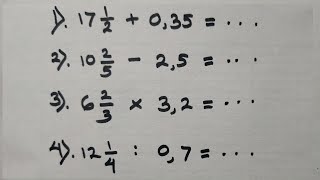 1). 17 1/2 + 0,35 = ...
2). 10 2/5 - 2,5 = ...
3). 6 2/3 × 3,2 = ...
4). 12 1/4 : 0,7 = ...